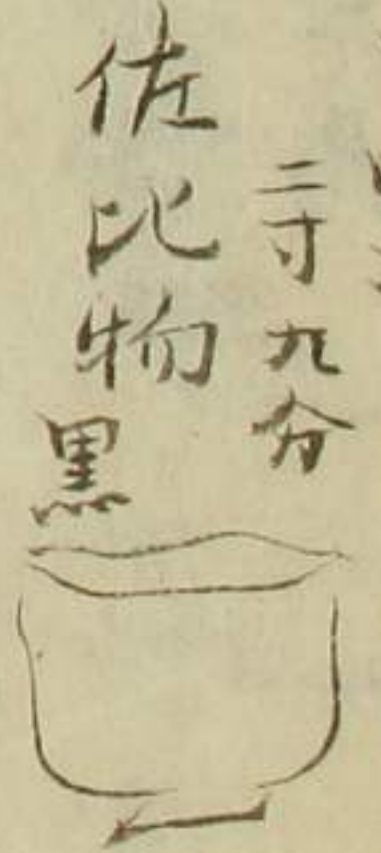 二寸九分
佐比物
黒